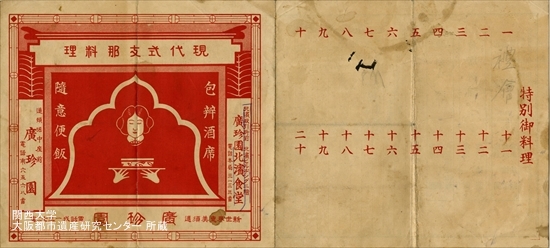 現代式支那料理
包辦酒席
隨意便飯
廣珍園北濱食堂
道頓堀中座前
廣珍園
電話南六五六八番
廣珍園
特別御料理
一 二 三 四 五 六 七 八 九 十
十一 十二 十三 十四 十五 十六 十七 十八 十九 二十
関西大学
大阪都市遺産研究センター 所蔵